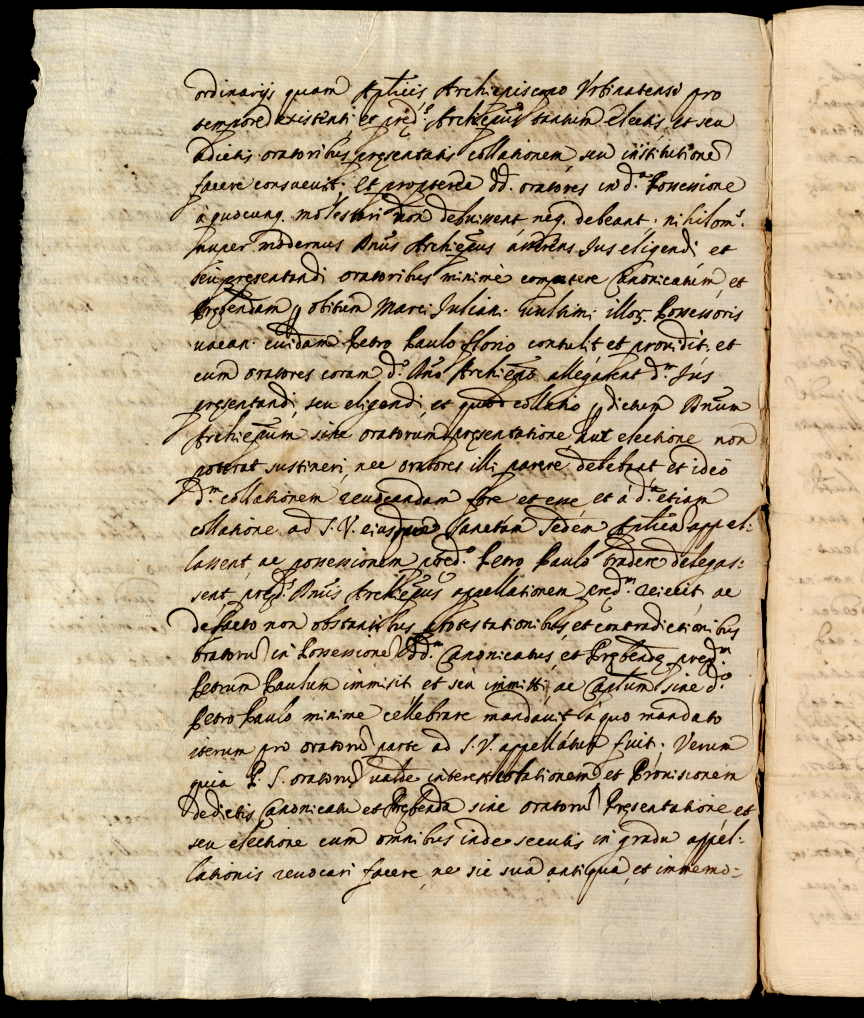 ordinarijs quam Aplicis Archiepiscopo Vrbinatensi pro
tempore existenti et pred.º Archiepus tantum electis et seu
a dictis oratoribus presentatis collationem seu institutione
facere consueuit. Et propterea dd. oratores in d.ª Possessione
a quocunq. molestari non debuissent neq. debeant. nihilom.s
nuper modernus Dnus Archiepus asserens Jus eligendi et
seu presentandi oratoribus minime competere Canonicatum et
Prebendam p obitum Marci Juliani ultimi illor. Possessoris
uacan. cuidam Petro Paulo Florio contulit et prouidit. et
cum oratores coram d.º Dno Archiepo allegassent d.m Jus
presentandi, seu eligendi, et quod collatio p dictum Dnum
Archiepum sine oratorum presentatione aut electione non
poterat sustineri, nec oratores illi parere debebant et ideo
d.m collationem reuocandam fore et esse et a d.ª etiam
collatione ad S. V. eiusque Sanctam Sedem Aplica appel:
lassent ac possessionem pred.º Petro Paulo tradere
sent pred.s Dnus Archiepus appellationem pred.m reiecit ac
de facto non obstantibus protestationibus et contradictionibus
oratoru in Possessione dd.m Canonicatus et Prebende pred.m
Petrum Paulum immisit et seu immitti, ac Captum sine d.º
Petro Paulo minime cellebrare mandauit a quo mandato
iterum pro oratoru parte ad S. V. appellatum fuit. Verum
quia P. S. oratoru ualde interest collationem et Prouisionem
de dictis Canonicatu et Prebenda sine oratoru Presentatione et
seu electione cum omnibus inde secutis in gradu appel:
lationis reuocari facere, ne sic sua antiqua, et immemo: